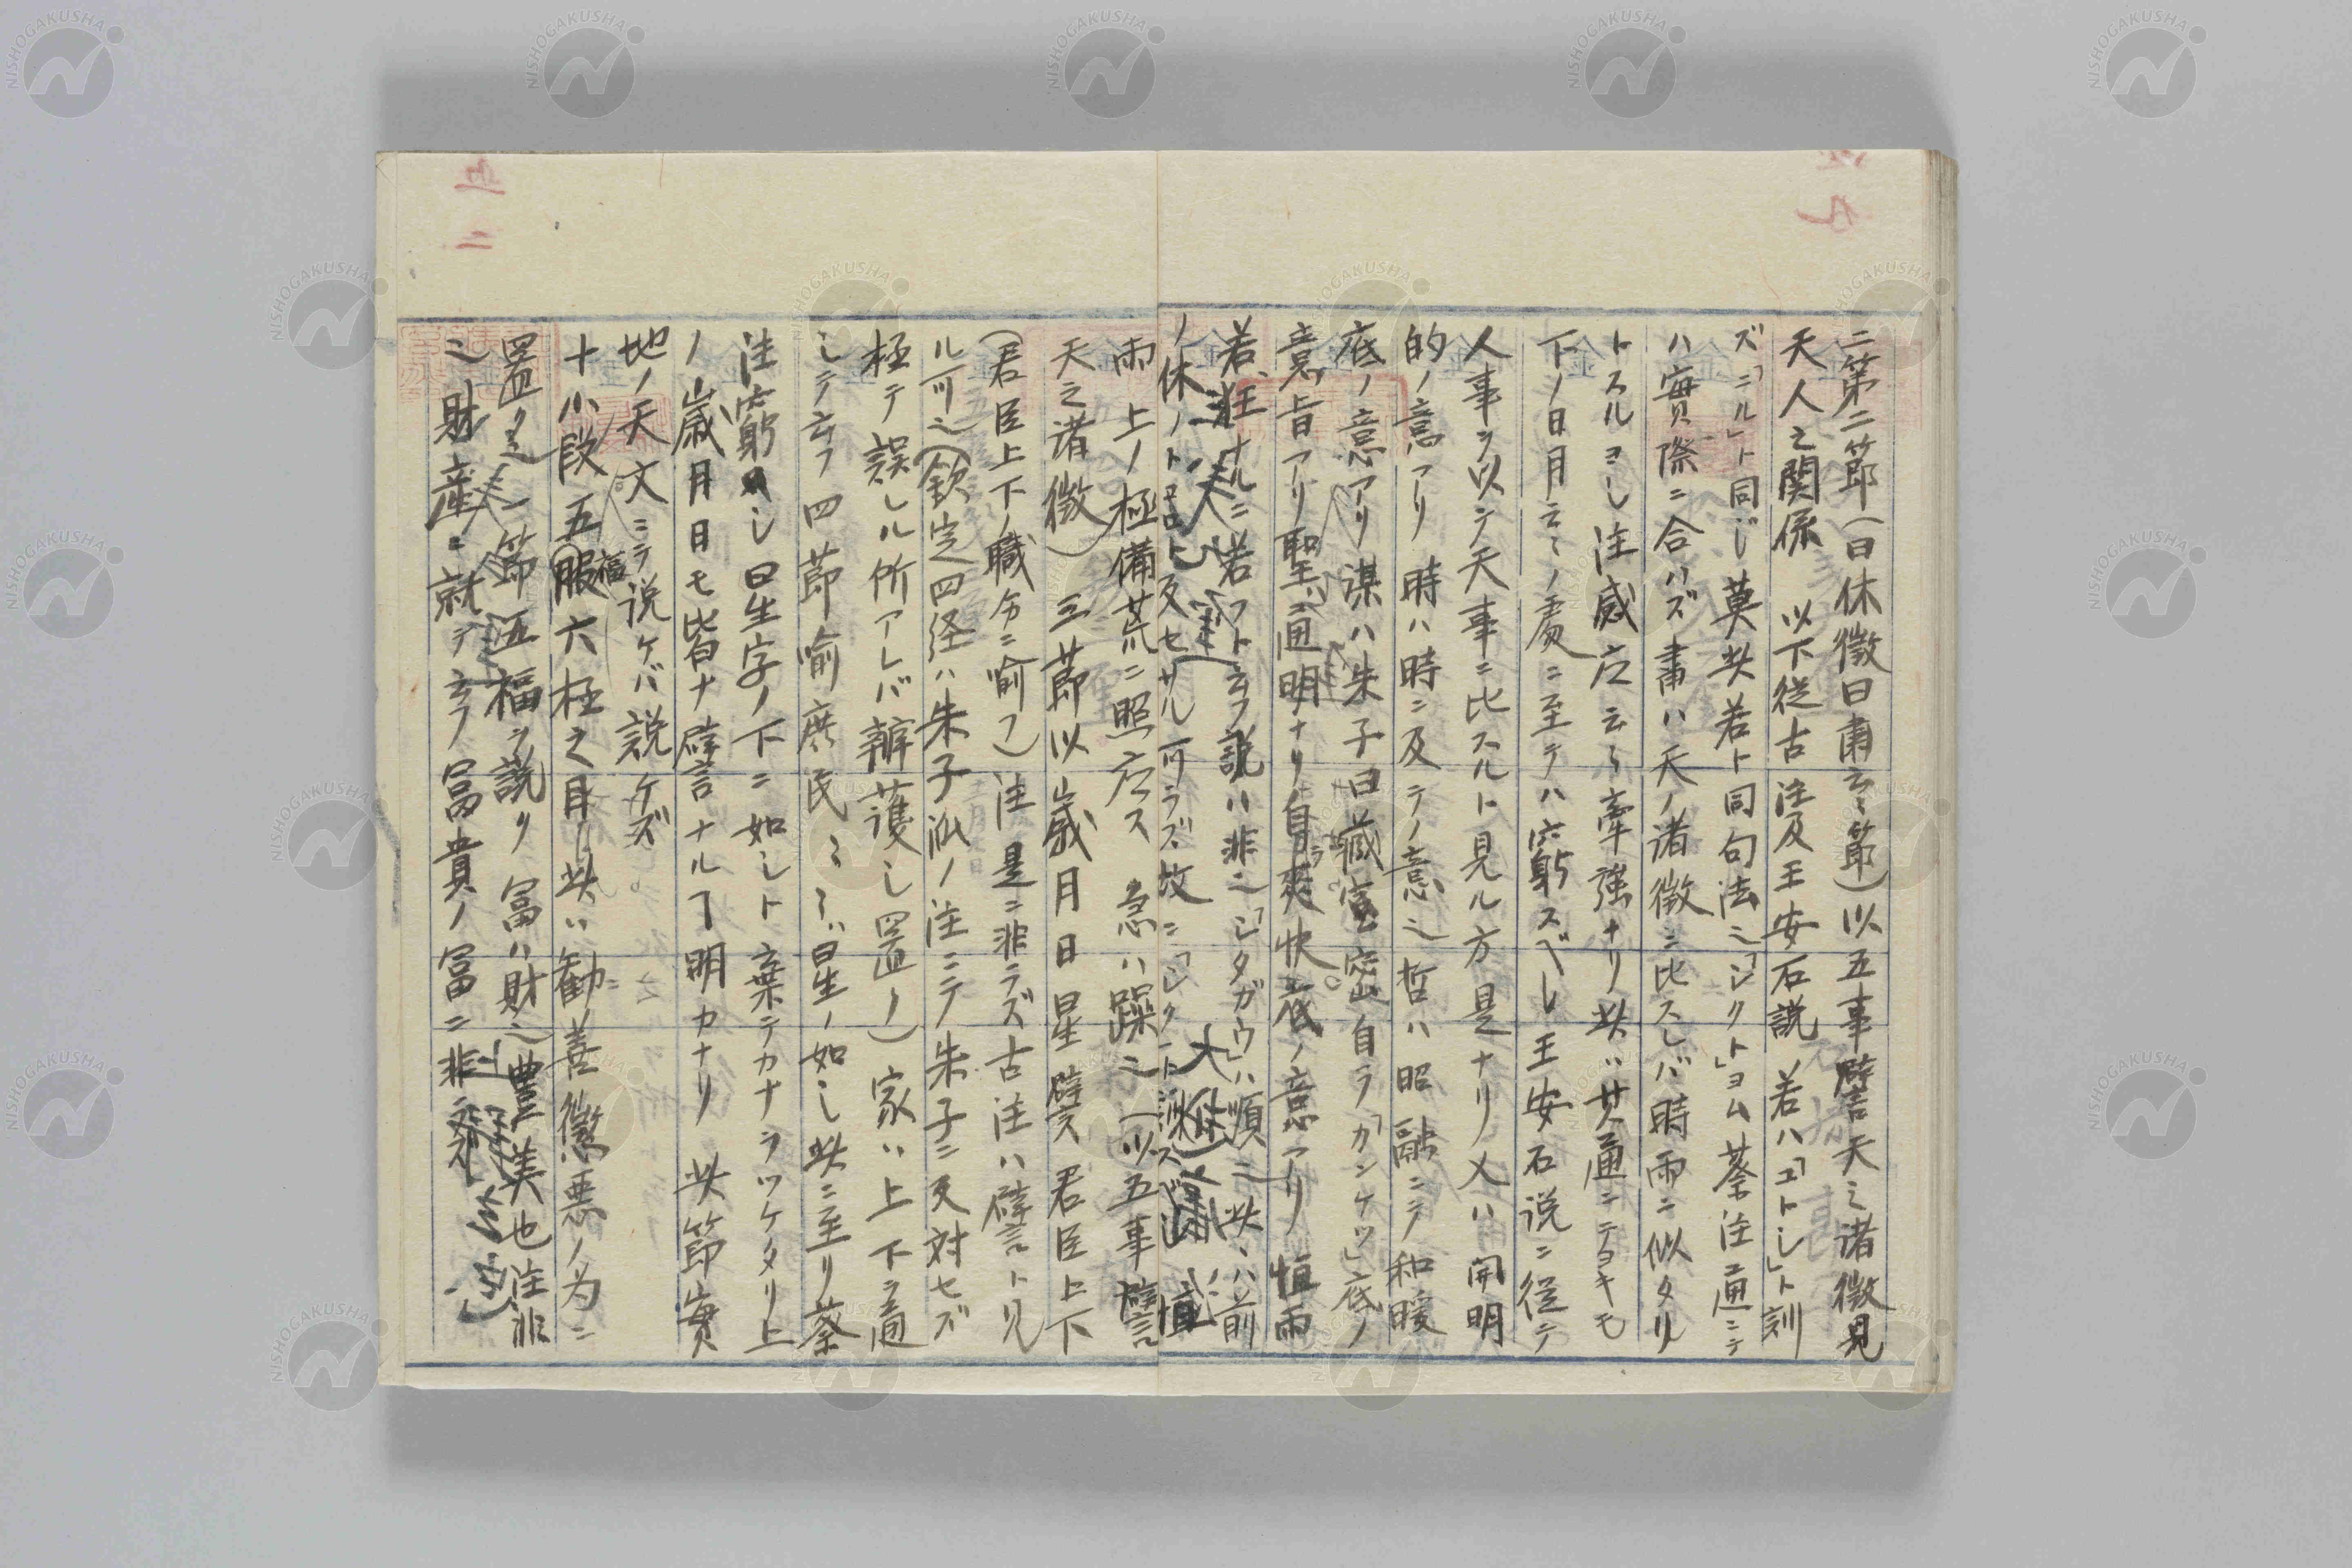 二第二節(曰休徴曰肅云〻節)以五事譬天之諸徴見
天人之関係 以下従古注及王安石説 若ハ「ゴトシ」ト訓
ズ「ニル」ト同じ 莫 此若ト同句法也「ジクト」ヨム 蔡注通ニテ
ハ實際ニ合ハズ 肅ハ天ノ諸徴ニ比スレバ時雨ニ似タリ
トスルヨシ 注感应云〻牽強ナリ 此ハ廿通ニテヨキモ
下ノ日月云〻ノ處ニ至テハ窮スベし 王安石説ニ従テ
人事ヲ以テ天事ニ比スルト見ル方是ナリ 乂ハ 開明
的ノ意アリ 時ハ時ニ及テノ意也 哲ハ昭融ニテ和暖
底ノ意アリ 謀ハ朱子曰藏密 自ラ「カンケツ」底ノ
意旨アリ 聖ハ通明ナリ 自ラ爽快底ノ意アリ 恒雨
若 狂ナルニ若フト云フ説ハ非也「シタガウ」ハ順也 此ハ前
ノ休ノトコロト反セサル可ラズ 故ニ
雨 上ノ極備荒ニ照应ス 急ハ躁也 (以五事譬
天之諸徴) 三節以歳月日星譬 君臣上下
(君臣上下ノ職分ニ喩フ) 注 是ニ非ラズ 古注ハ譬ト見
ル可也 (欽定四経ハ朱子派ノ注ニテ朱子ニ反対セズ
極テ誤レル所アレバ辯護し置ク) 家ハ上下ヲ通
じテ云フ 四節喩庶民 〻〻ハ星ノ如し 此ニ至リ蔡
注窮し 曰星字ノ下ニ如しト棄テカナラツケタリ 上
ノ歳月日モ皆ナ譬ナルヿ明カナリ 此節實
地ノ天文ニテ説ケバ説ケズ
十小段五福六極之目 此ハ勧善懲悪ノ為ニ
置クモノ 一節五福ヲ説ク 富ハ財也 豊美也 注非
也 財産ニ就テ云フ 富貴ノ富ニ非ズ